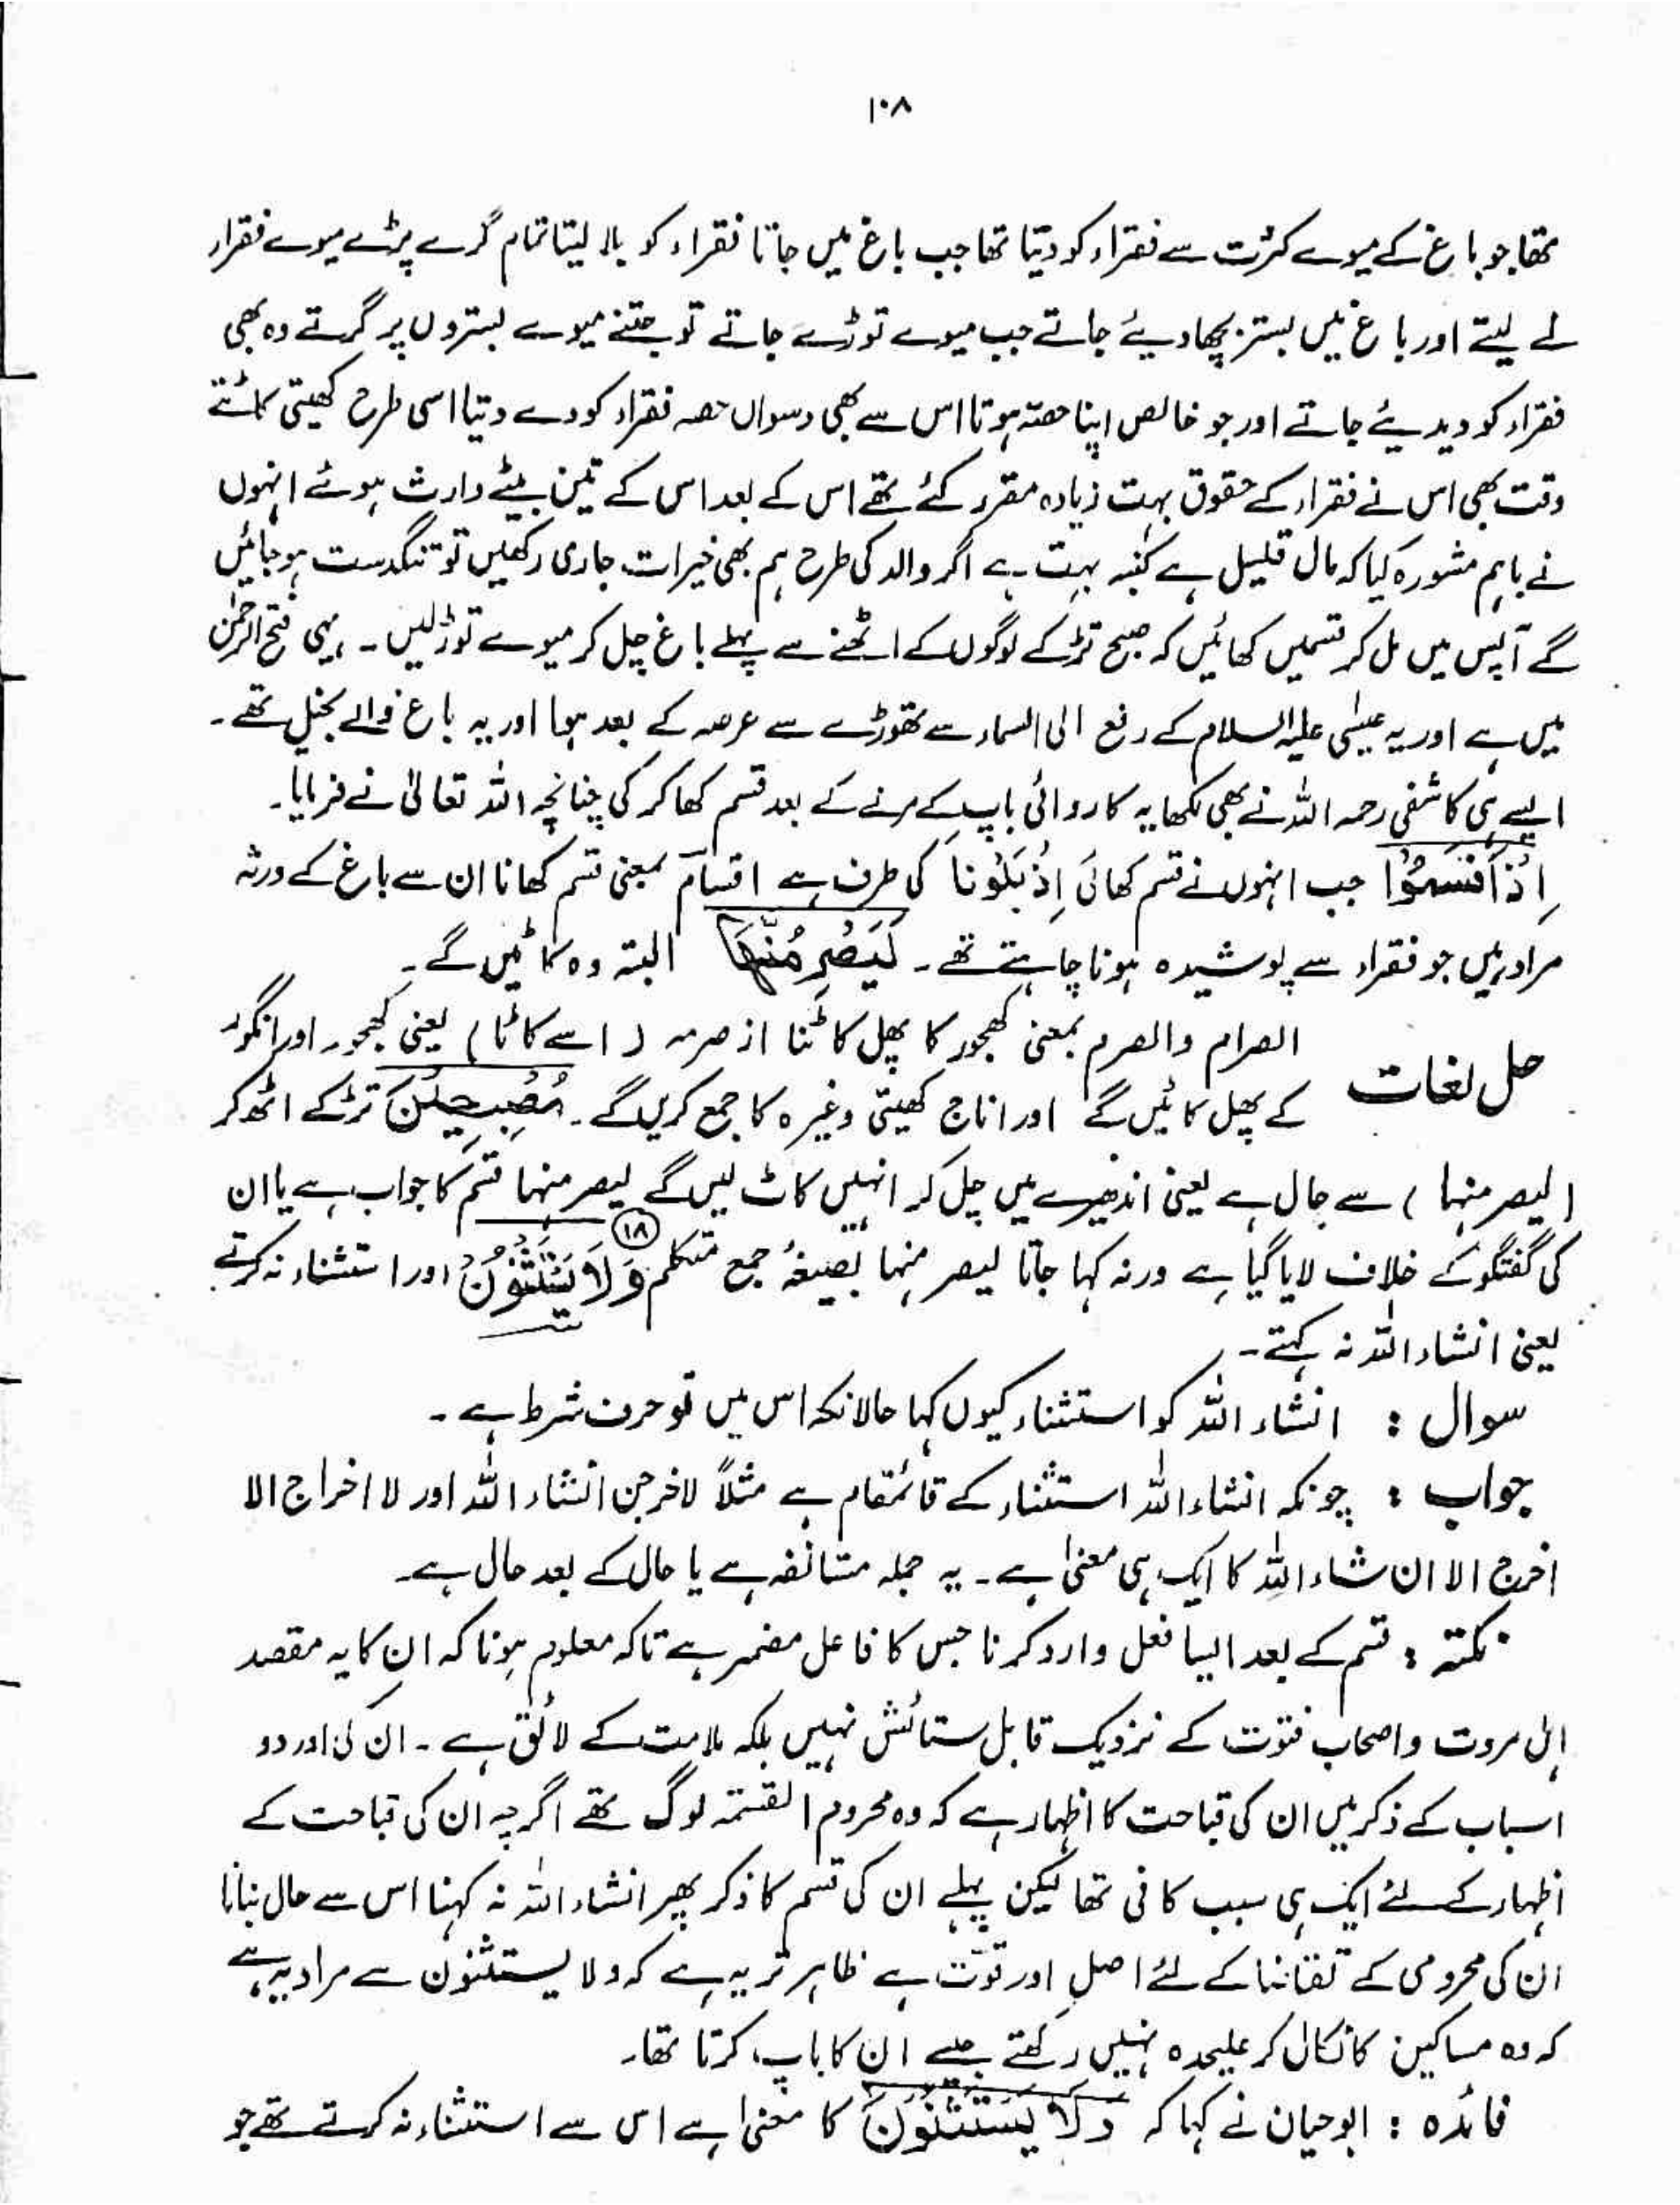 ۱۰۸
تھا جو باغ کے میوے کثرت سے فقراء کو دیتا تھا جب باغ میں جاتا فقراء کو بلا لیتا تمام گرے پڑے میوے فقراء
لے لیتے اور باغ میں بستر بچھا دیئے جاتے جب میوے توڑے جاتے تو جتنے میوے بستروں پر گرتے وہ بھی
فقراء کو دیدیئے جاتے اور جو خالص اپنا حصّہ ہوتا اس سے بھی دسواں حصہ فقراء کو دے دیتا اسی طرح کھیتی کاٹتے
وقت بھی اس نے فقراء کے حقوق بہت زیادہ مقرر کئے تھے اس کے بعد اس کے تین بیٹے وارث ہوئے انہوں
نے باہم مشورہ کیا کہ مال قلیل ہے کنبہ بہت ہے اگر والد کی طرح ہم بھی خیرات جاری رکھیں تو تنگدست ہو جائیں
گے آپس میں مل کر قسمیں کھائیں کہ صبح تڑکے لوگوں کے اٹھنے سے پہلے باغ چل کر میوے توڑ لیں ۔ یہی فتح الرحمٰن
میں ہے اور یہ عیسٰی علیہ السلام کے رفع الی السماء سے تھوڑے سے عرصہ کے بعد ہوا اور یہ باغ والے بخیل تھے ۔
ایسے ہی کاشفی رحمہ اللہ نے بھی لکھا یہ کاروائی باپ کے مرنے کے بعد قسم کھا کر کی چنانچہ اللہ تعالیٰ نے فرمایا۔
اِذْ اَقْسَمُوْا جب انہوں نے قسم کھائی اِذْ بَلَوْنَا کی طرف ہے اقسام بمعنی قسم کھانا ان سے باغ کے ورثہ
مراد ہیں جو فقراء سے پوشیدہ ہونا چاہتے تھے ۔ لَیَصْرِمُنَّهَا البتہ وہ کاٹیں گے ۔
حل لغات الصرام والصرم بمعنی کھجور کا پھل کاٹنا از صرمہ ( اسے کاٹا ) یعنی کھجور اور انگور
کے پھل کاٹیں گے اور اناج کھیتی وغیرہ کا جمع کریں گے ۔ مُصْبِحِیْنَ تڑکے اٹھ کر
( لیصرمنہا ) سے حال ہے یعنی اندھیرے میں چل کر انہیں کاٹ لیں گے لیصرمنہا قسم کا جواب ہے یا ان
کی گفتگو کے خلاف لایا گیا ہے ورنہ کہا جاتا لیصرمنہا بصیغۂ جمع متکلم ۱۸ وَلَا یَسْتَثْنُوْنَ اور استثناء نہ کرتے
یعنی انشاء اللہ نہ کہتے ۔
سوال : انشاء اللہ کو استثناء کیوں کہا حالانکہ اس میں تو حرف شرط ہے ۔
جواب : چونکہ انشاء اللہ استثناء کے قائمقام ہے مثلاً لاخرجن انشاء اللہ اور لا اخراج الا
اخرج الا ان شاء اللہ کا ایک ہی معنیٰ ہے ۔ یہ جملہ مستانفہ ہے یا حال کے بعد حال ہے ۔
نکتہ : قسم کے بعد ایسا فعل وارد کرنا جس کا فاعل مضمر ہے تاکہ معلوم ہونا کہ ان کا یہ مقصد
اہل مروت و اصحاب فتوت کے نزدیک قابل ستائش نہیں بلکہ ملامت کے لائق ہے ۔ ان کی اور دو
اسباب کے ذکر میں ان کی قباحت کا اظہار ہے کہ وہ محروم القسمۃ لوگ تھے اگرچہ ان کی قباحت کے
اظہار کے لئے ایک ہی سبب کافی تھا لیکن پہلے ان کی قسم کا ذکر پھر انشاء اللہ نہ کہنا اس سے حال بنانا
ان کی محرومی کے تقاضا کے لئے اصل اور قوّت ہے ظاہر تر یہ ہے کہ ولا یستثنون سے مراد یہ ہے
کہ وہ مساکین کا نکال کر علیحدہ نہیں رکھتے جیسے ان کا باپ کرتا تھا۔
فائدہ : ابوحیان نے کہا کہ وَلَا یَسْتَثْنُوْنَ کا معنیٰ ہے اس سے استثناء نہ کرتے تھے جو